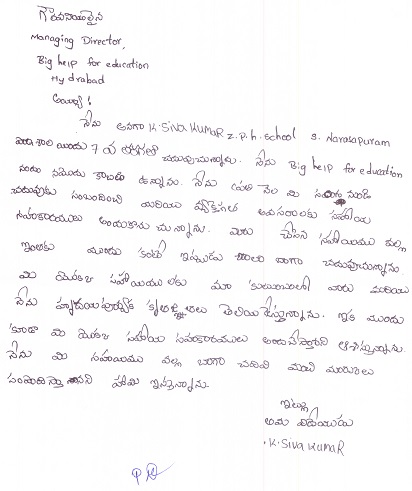 గౌరవనీయులైన
Managing Director,
Big help for education
Hydrabad
అయ్యా!
నేను అనగా K. Siva KUMAR z.p.h. school S. Narasapuram
నందు 7 వ తరగతి చదువుచున్నాను. నేను Big help for education
నందు నమోదు కాబడి ఉన్నాను. నేను ప్రతి నెల మీ నుండి
చదువుకు సంబంధించి మరియు అవసరాలకు సహాయ
సహకారములు అందుకొనుచున్నాను. మీరు చేసిన సహాయము వల్ల
ఇంతకు ముందు కంటే ఇప్పుడు చాలా బాగా చదువుచున్నాను
మీ యొక్క సహాయములకు మా కుటుంబంలో వారు మరియు
నేను హృదయపూర్వక కృతజ్ఞతలు తెలియచేస్తున్నాను. ఇక ముందు
కూడా మీ యొక్క సహాయ సహకారములు అందచేస్తారని ఆశిస్తున్నాను.
నేను మీ సహాయము వల్ల బాగా చదివి మంచి మార్కులు
సంపాదిస్తానని హామీ ఇస్తున్నాను.
ఇట్లు
తమ విధేయుడు
. K. Siva KUMAR